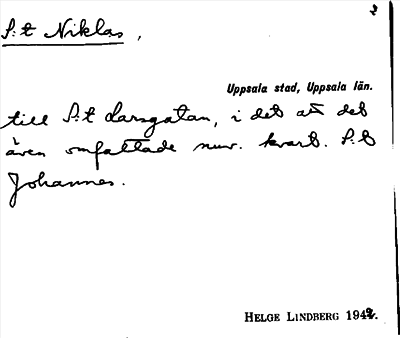 2
S:t Niklas,
Uppsala stad, Uppsala län.
till S:t Larsgatan, i det att det
även omfattade nuv. kvart. S:t
Johannes.
HELGE LINDBERG 1942.